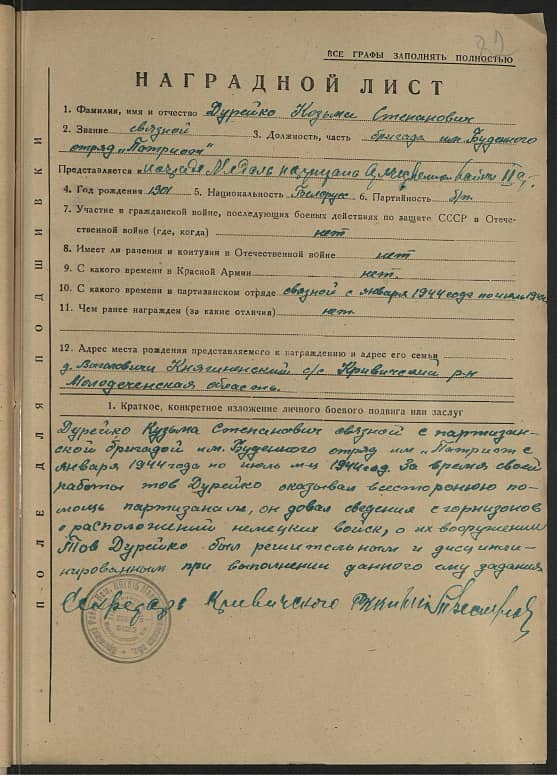 82
ВСЕ ГРАФЫ ЗАПОЛНЯТЬ ПОЛНОСТЬЮ
НАГРАДНОЙ ЛИСТ
1. Фамилия, имя и отчество Дурейко Козьми Степанович
2. Звание связной 3. Должность, часть бригада им. Буденного
отряд „Патриот“
Представляется к награде Медаль партизана Отечественной войны II ст.
4. Год рождения 1901 5. Национальность Белорус 6. Партийность б/п.
7. Участие в гражданской войне, последующих боевых действиях по защите СССР в Отече-
ственной войне (где, когда) нет
8. Имеет ли ранения и контузии в Отечественной войне нет
9. С какого времени в Красной Армии нет.
10. С какого времени в партизанском отряде связной с января 1944 года по июль 1944
11. Чем ранее награжден (за какие отличия) нет
12. Адрес места рождения представляемого к награждению и адрес его семьи
д. Княгининский с/с Кривичский р-н
Молодеченская область.
1. Краткое, конкретное изложение личного боевого подвига или заслуг
Дурейко Кузьма Степанович связной с партизан-
ской бригадой им. Буденного отряд им „Патриот с
января 1944 года по июль м-ц 1944 год. За время своей
работы тов Дурейко оказывал всесторонюю по-
мощь партизанам, он довал сведения с горнизонов
о расположений немецких войск, о их вооружении
Тов Дурейко был решительным и дисципли-
нированным при выполнении данного ему задания
Секретарь Кривичского РК
ПОЛЕ ДЛЯ ПОДШИВКИ